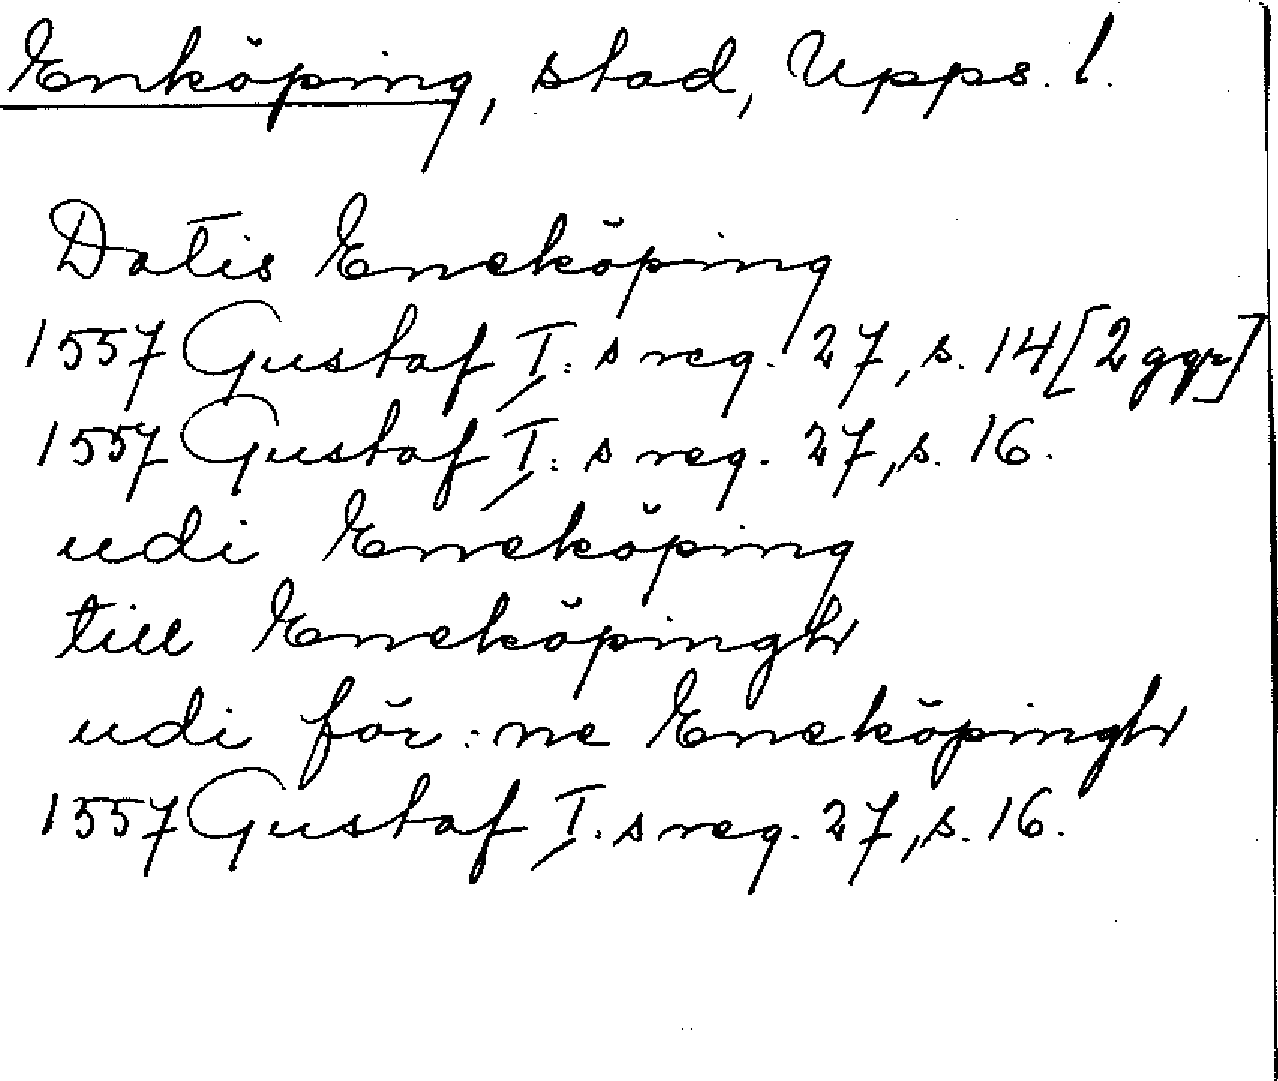 Enköping, stad, Upps. l.
Datis Eneköping
1557 Gustaf I:s reg. 27, s. 14 [2 ggr]
1557 Gustaf I:s reg. 27, s. 16.
udi Eneköping
till Eneköpingh
udi för:ne Eneköpingh
1557 Gustaf I:s reg. 27, s. 16.